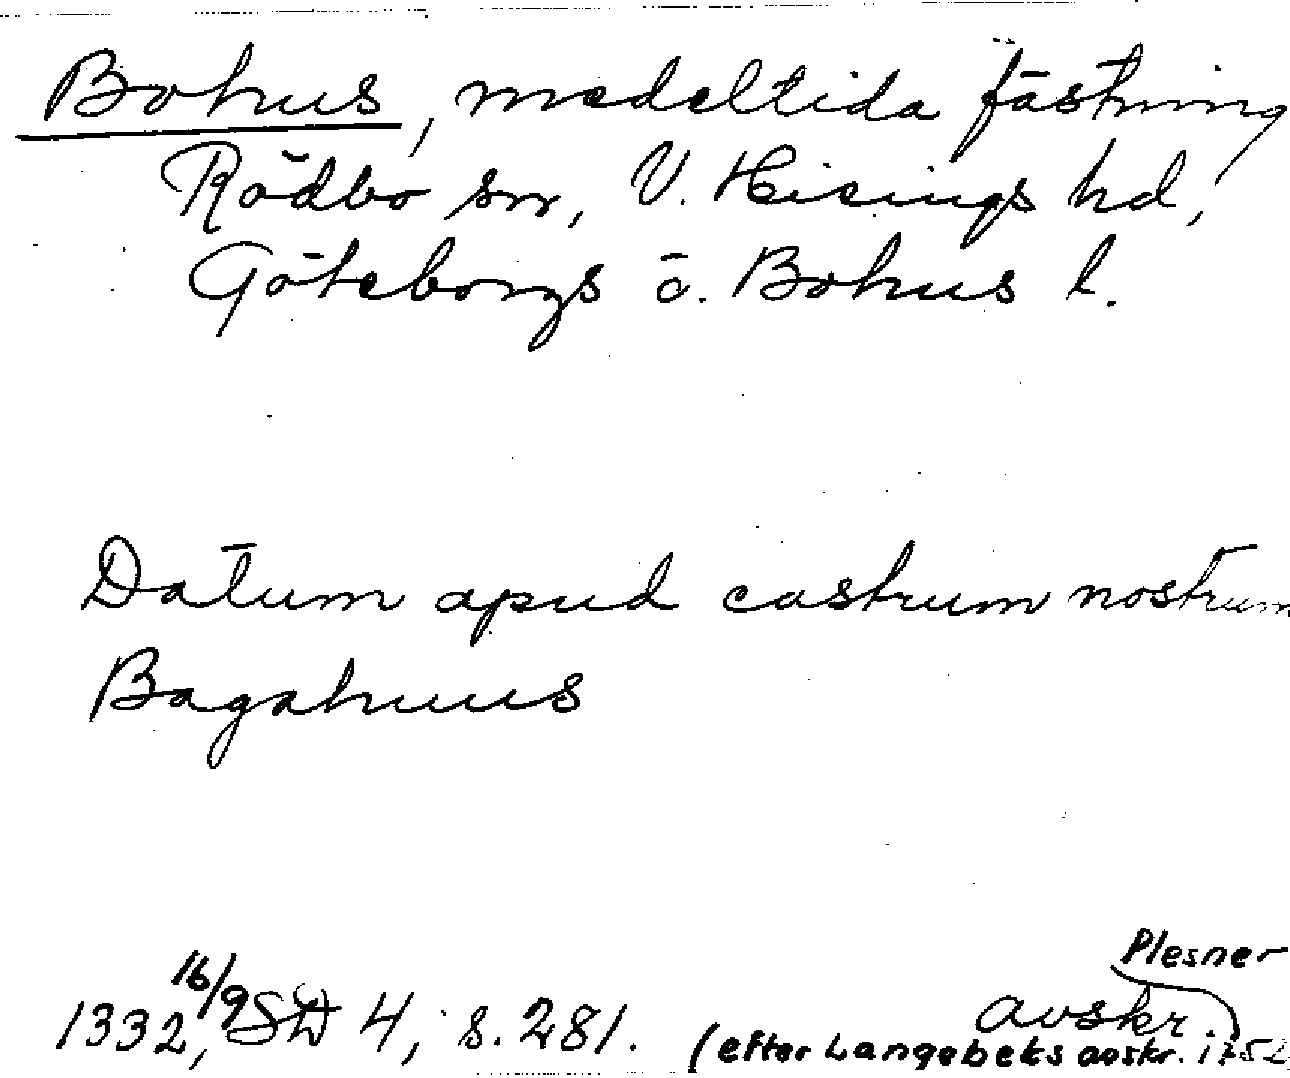 Bohus, medeltida fästning
Rödbo sn, V. Hisings hd,
Göteborgs o. Bohus l.
Datum apud castrum nostrum
Bagahuus
Plesner
1332, 16/9 SD 4, s. 281. avskr.
(efter Langebeks avskr. i